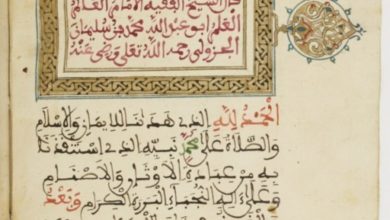 قال الشيخ الفقيه الامام العالم
العلم ابو عبد الله محمد بن سليمان
الجزولي رحمه الله تعلى ورضي عنه
الحمد لله الذي هدىنا للايمان والاسلام
والصلاة على محمد نبيه الذي استنقذنا
به من عبادة الاوثان والاصنام
وعلى اله النجباء البررة الكرام وبعد